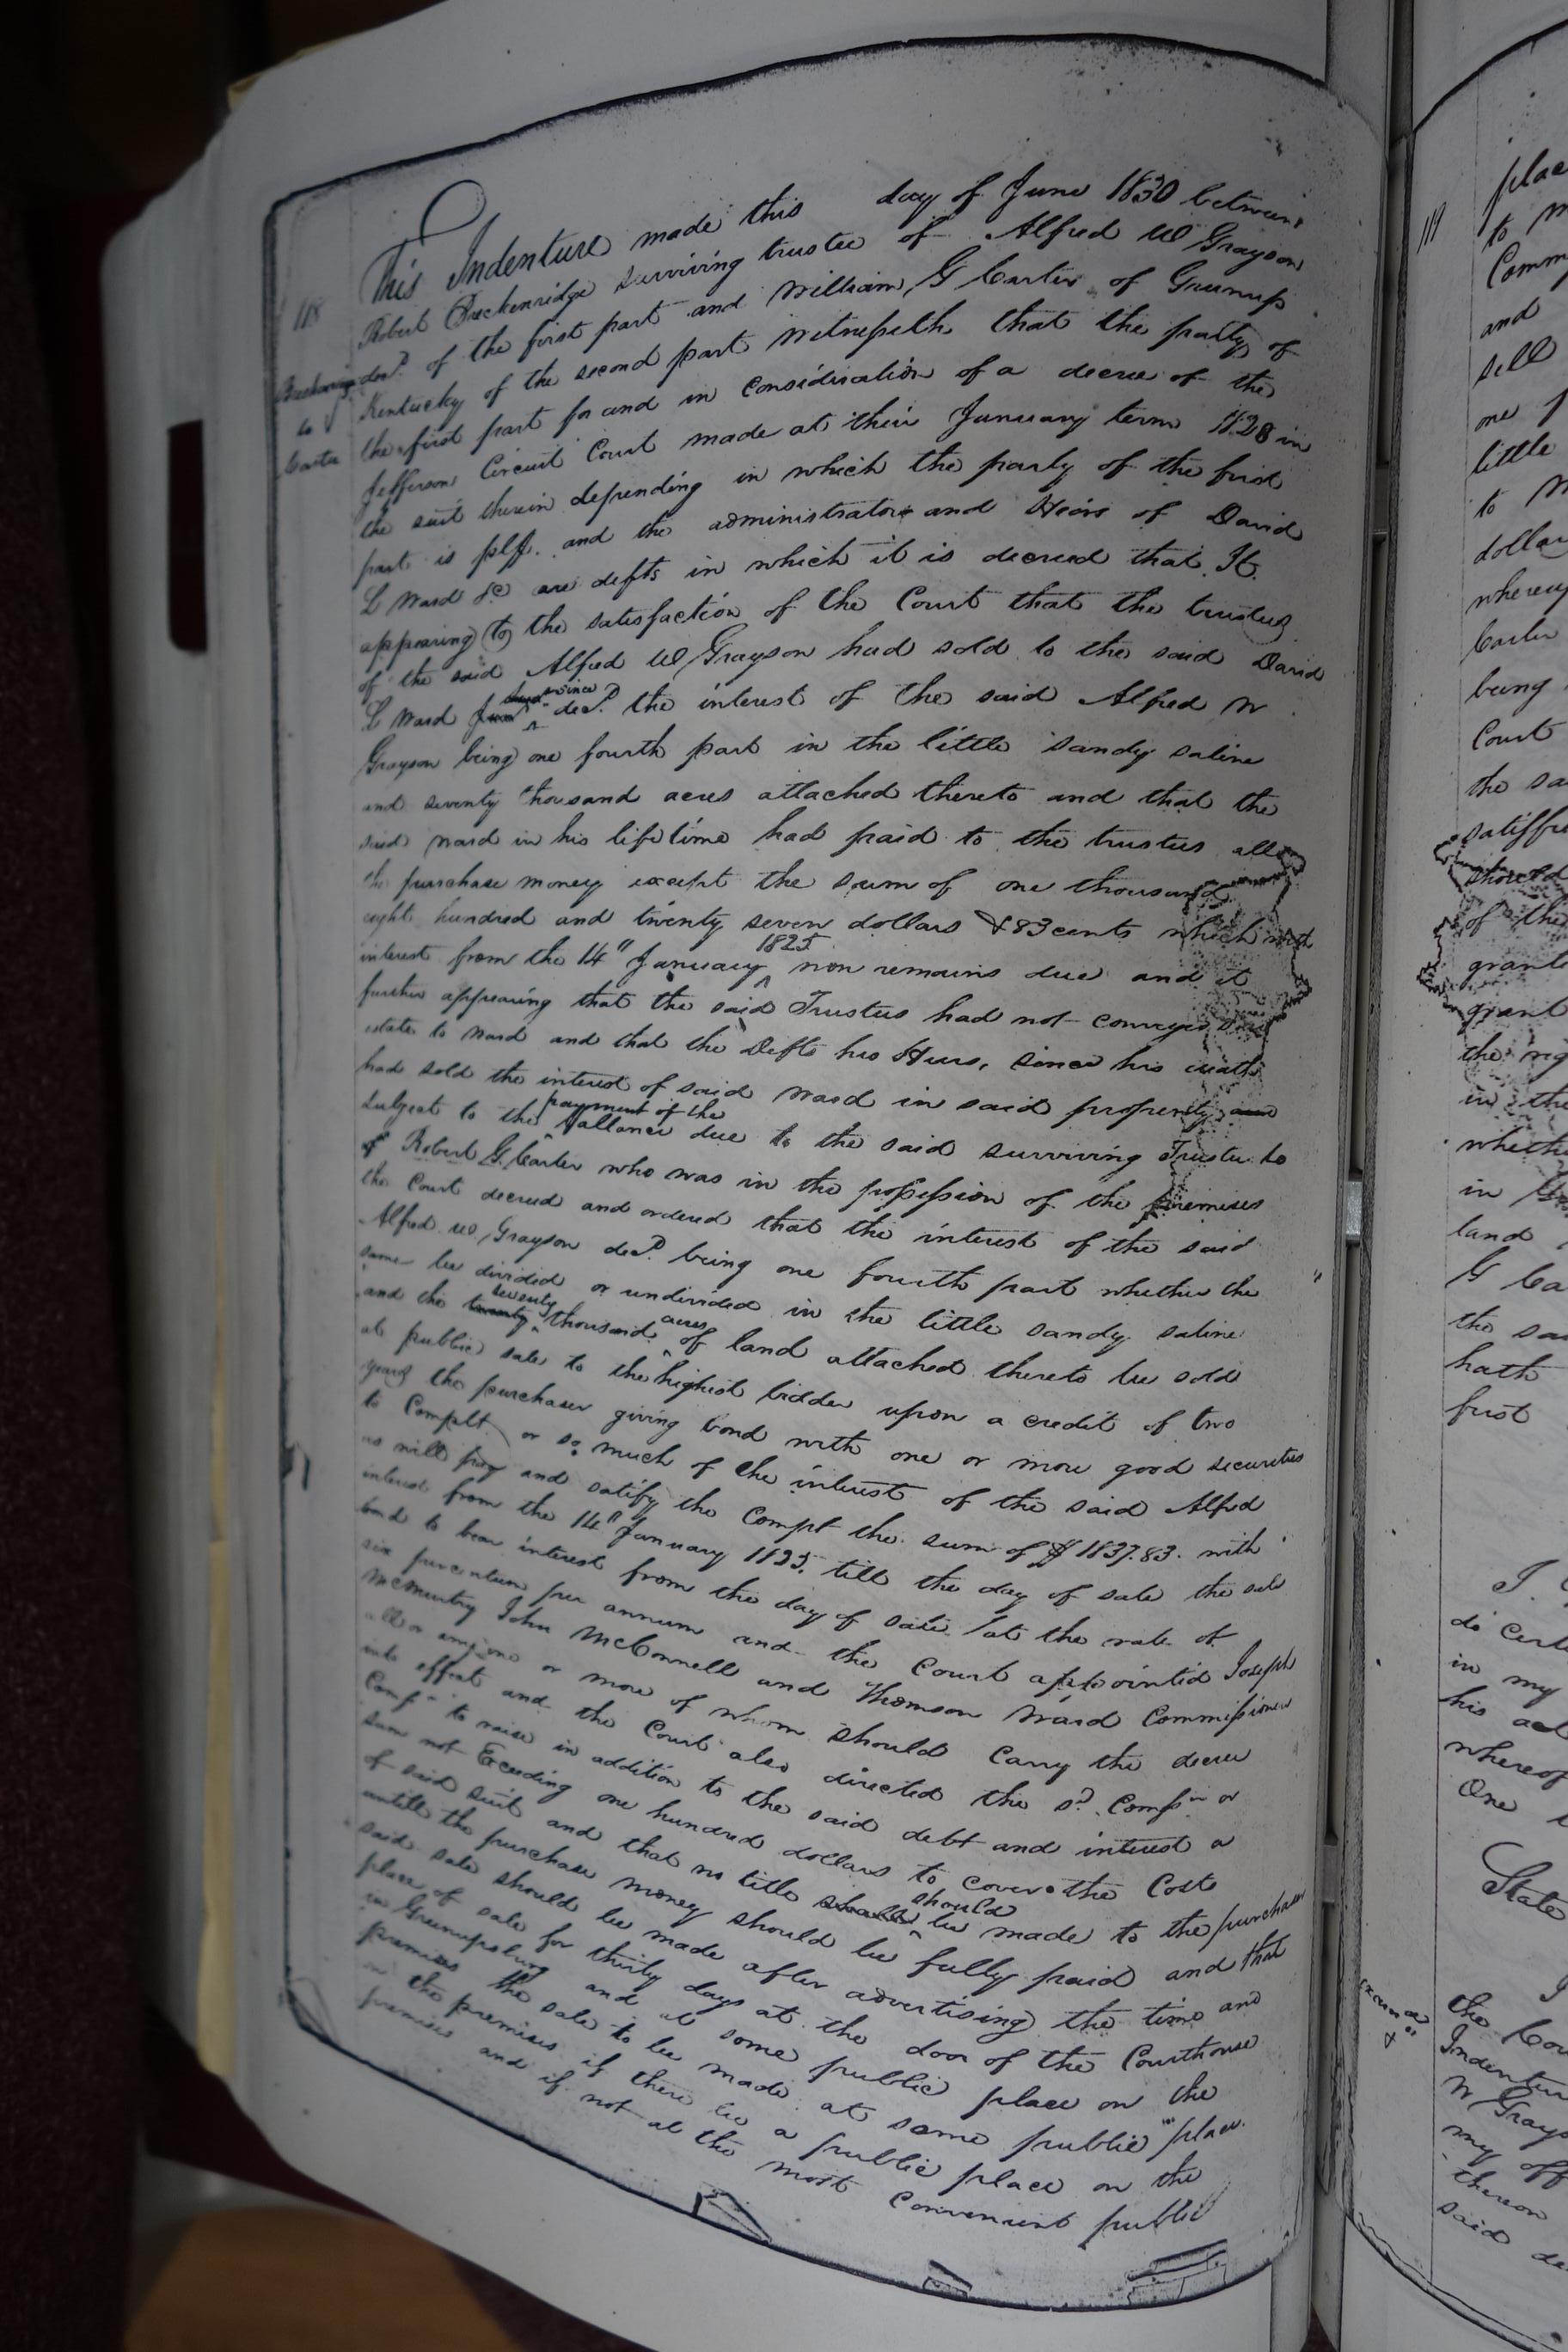 118
Breckenridge
to
Carter
This Indenture made this day of June 1830 between
Robert Breckenridge surviving trustee of Alfred W Grayson
decd of the first part and William G Carter of Greenup
Kentucky of the second part Witnesseth that the party of
the first part for and in consideration of a decree of the
Jefferson Circuit Court made at their January term 1828 in
the suit therein depending in which the party of the first
part is plff. and the administrators and Heirs of David
L Ward &c are defts in which it is decreed that It
appearing to the satisfaction of the Court that the trustees
of the said Alfred W Grayson had sold to the said David
L Ward since decd the interest of the said Alfred W
Grayson being one fourth part in the little sandy saline
and seventy thousand acres attached thereto and that the
said Ward in his life time had paid to the trustees all
the purchase money except the sum of one thousand
eight hundred and twenty seven dollars & 83 cents which with
interest from the 14" January 1825 now remains due and it
further appearing that the said Trustees had not conveyed said
estate to Ward and that the Defts his Heirs, since his death
had sold the interest of said Ward in said property
subject to the payment of the ballance due to the said surviving Trustee to
Robert G Carter who was in the possession of the premises
the Court decreed and ordered that the interest of the said
Alfred W Grayson decd being one fourth part whether the
same be divided or undivided in the little sandy saline
and the twenty seventy thousand acres of land attached thereto be sold
at public sale to the highest bidder upon a credit of two
years the purchaser giving bond with one or more good securities
to Complt or so much of the interest of the said Alfred
as will pay and satify the Complt the sum of $1837.83. with
interest from the 14" January 1825. till the day of sale the said
bond to bear interest from the day of sale at the rate of
six per centum per annum and the Court appointed Joseph
McMurtry John McConnell and Thomson Ward Commissioners
all or any one or more of whom should carry the decree
into effect and the Court also directed the sd. Comsrs or
Comsr to raise in addition to the said debt and interest a
sum not Exceeding one hundred dollars to cover the Costs
of said suit and that no title should be made to the purchaser
untill the purchase money should be fully paid and that
said sale should be made after advertising the time and
place of sale for thirty days at the door of the Courthouse
in Greenupsburg and at some public place on the
premises the sale to be made at some public place
on the premises if there be a public place on the
premises and if not at the most convenient public
119
place
to
Comm
and
sell
one
little
to
dollar
Carter
being
Court
the sa
should
of the
grant
grant
in the
in
land
G Ca
the sa
hath
first
I.
do Certi
in my
his
whereof
One
State
I
the Cou
Indentur
W Grays
my off
thereon
said de